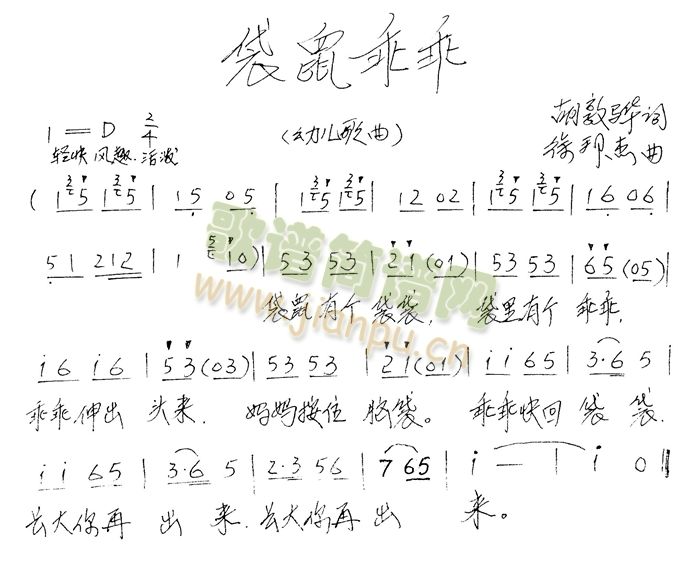 袋鼠乖乖
1=D 2/4
(幼儿歌曲)
胡敦骅词
轻快 风趣.活泼
徐邦杰曲
( 1 3 5 1 3 5 | 1 5 0 5 | 1 3 5 1 3 5 | 1 2 0 2 | 1 3 5 1 3 5 | 1 6 0 6 |
5 1 2 1 2 | 1 5 1 0 ) | 5 3 5 3 | 2 1 (0 1) | 5 3 5 3 | 6 5 (0 5) |
袋鼠有个 袋袋, 袋里有个 乖乖,
i 6 i 6 | 5 3 (0 3) | 5 3 5 3 | 2 1 (0 1) | i i 6 5 | 3·6 5 |
乖乖伸出 头来. 妈妈按住 胸袋。 乖乖快回 袋 袋.
i i 6 5 | 3·6 5 | 2·3 5 6 | 7 6 5 | i — | i 0 ||
长大你再 出 来.长大你再 出 来。
歌谱简谱网
www.jianpu.cn